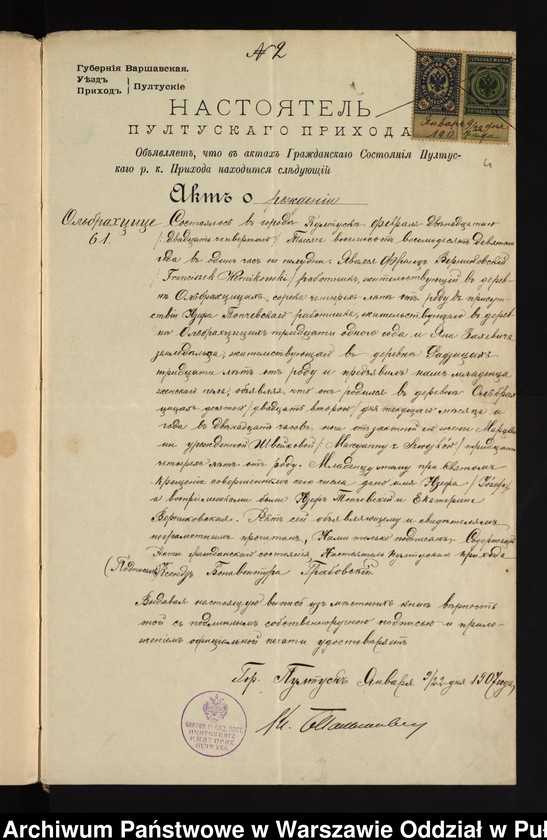 № 2
Губернія Варшавская.
Уѣздъ
Приходъ } Пултускіе
НАСТОЯТЕЛЬ
ПУЛТУСКАГО ПРИХОДА
Объявляетъ, что въ актахъ Гражданскаго Состоянія Пултус-
каго р. к. Прихода находится слѣдующій
Актъ о рожденіи
Ольбрахцице
61.
Состоялось въ городѣ Пултускѣ Февраля двѣнадцатаго
/двадцать четвертаго/ Тысяча восемьсотъ восемьдесятъ девятаго
года въ одинъ часъ по полудни. Явился Францъ Вершковскій
/Franciszek / работникъ, жительствующій въ дерев-
нѣ Ольбрахцицахъ, сорока четырехъ лѣтъ отъ роду, въ присут-
ствіи Іозефа работника, жительствующаго въ дерев-
нѣ Ольбрахцицахъ тридцати одного года и Яна
жительствующаго въ деревнѣ
тридцати лѣтъ отъ роду и предъявилъ намъ младенца
женскаго пола, объявляя, что онъ родился въ деревнѣ Ольбрах-
цицахъ десятаго /двадцать второго/ дня текущаго мѣсяца и
года въ двѣнадцать часовъ ночи отъ законной его жены Марцян-
ны урожденной Швейковой / Maryanny z / тридцати
четырехъ лѣтъ отъ роду. Младенцу этому при святомъ
крещеніи совершенномъ сего числа дано имя Іозефа
а воспріемниками были Іозефъ и Екатерина
Вершковская. Актъ сей объявляющему и свидѣтелямъ
неграмотнымъ прочитанъ, Нами только подписанъ. Содержащій
Акты гражданскаго состоянія, Настоятель Пултускаго прихода
(Подписалъ) Ксендзъ Бонавентура Грабовскій.
Выдавая настоящую выпись изъ мѣстныхъ книгъ вѣрность
той съ подлиннымъ собственноручною подписью и прило-
женіемъ офиціальной печати удостовѣряетъ
Гор. Пултускъ Января 9/22 дня 1907 года,
Archiwum Państwowe w Warszawie Oddział w Pu